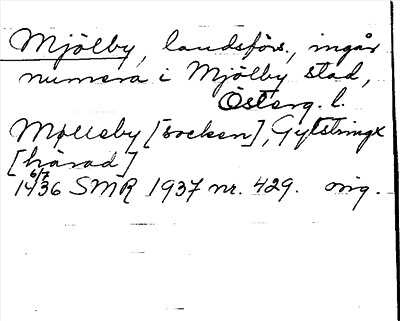 Mjölby, landsförs., ingår
numera i Mjölby stad,
Österg. l.
Mølleby [socken], Gytstringx
[härad]
6/7
1436 SMR 1937 nr. 429. orig.